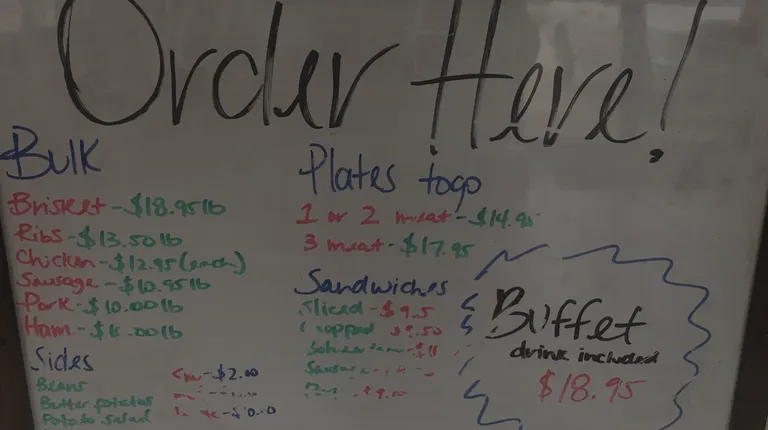 Order Here!
Bulk
Brisket - $18.95 lb
Ribs - $13.50 lb
Chicken - $12.95 (each)
Sausage - $10.95 lb
Pork - $10.00 lb
Ham - lb
Sides
Beans
Butter potatos
Potato salad
- $2.00
Plates togo
1 or 2 meat - $14.95
3 meat - $17.95
Sandwiches
Sliced - $9.5
$9.50
Sausage
Buffet
drink included
$18.95